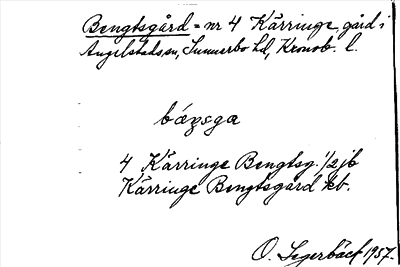 Bengtsgård = nr 4 Kärringe, gård i
Angelstads sn, Sunnerbo hd, Kronob. l.
4 Kärringe Bengtsg. 1/2 jb
Kärringe Bengtsgård kb.
O. Segerbäck 1957.